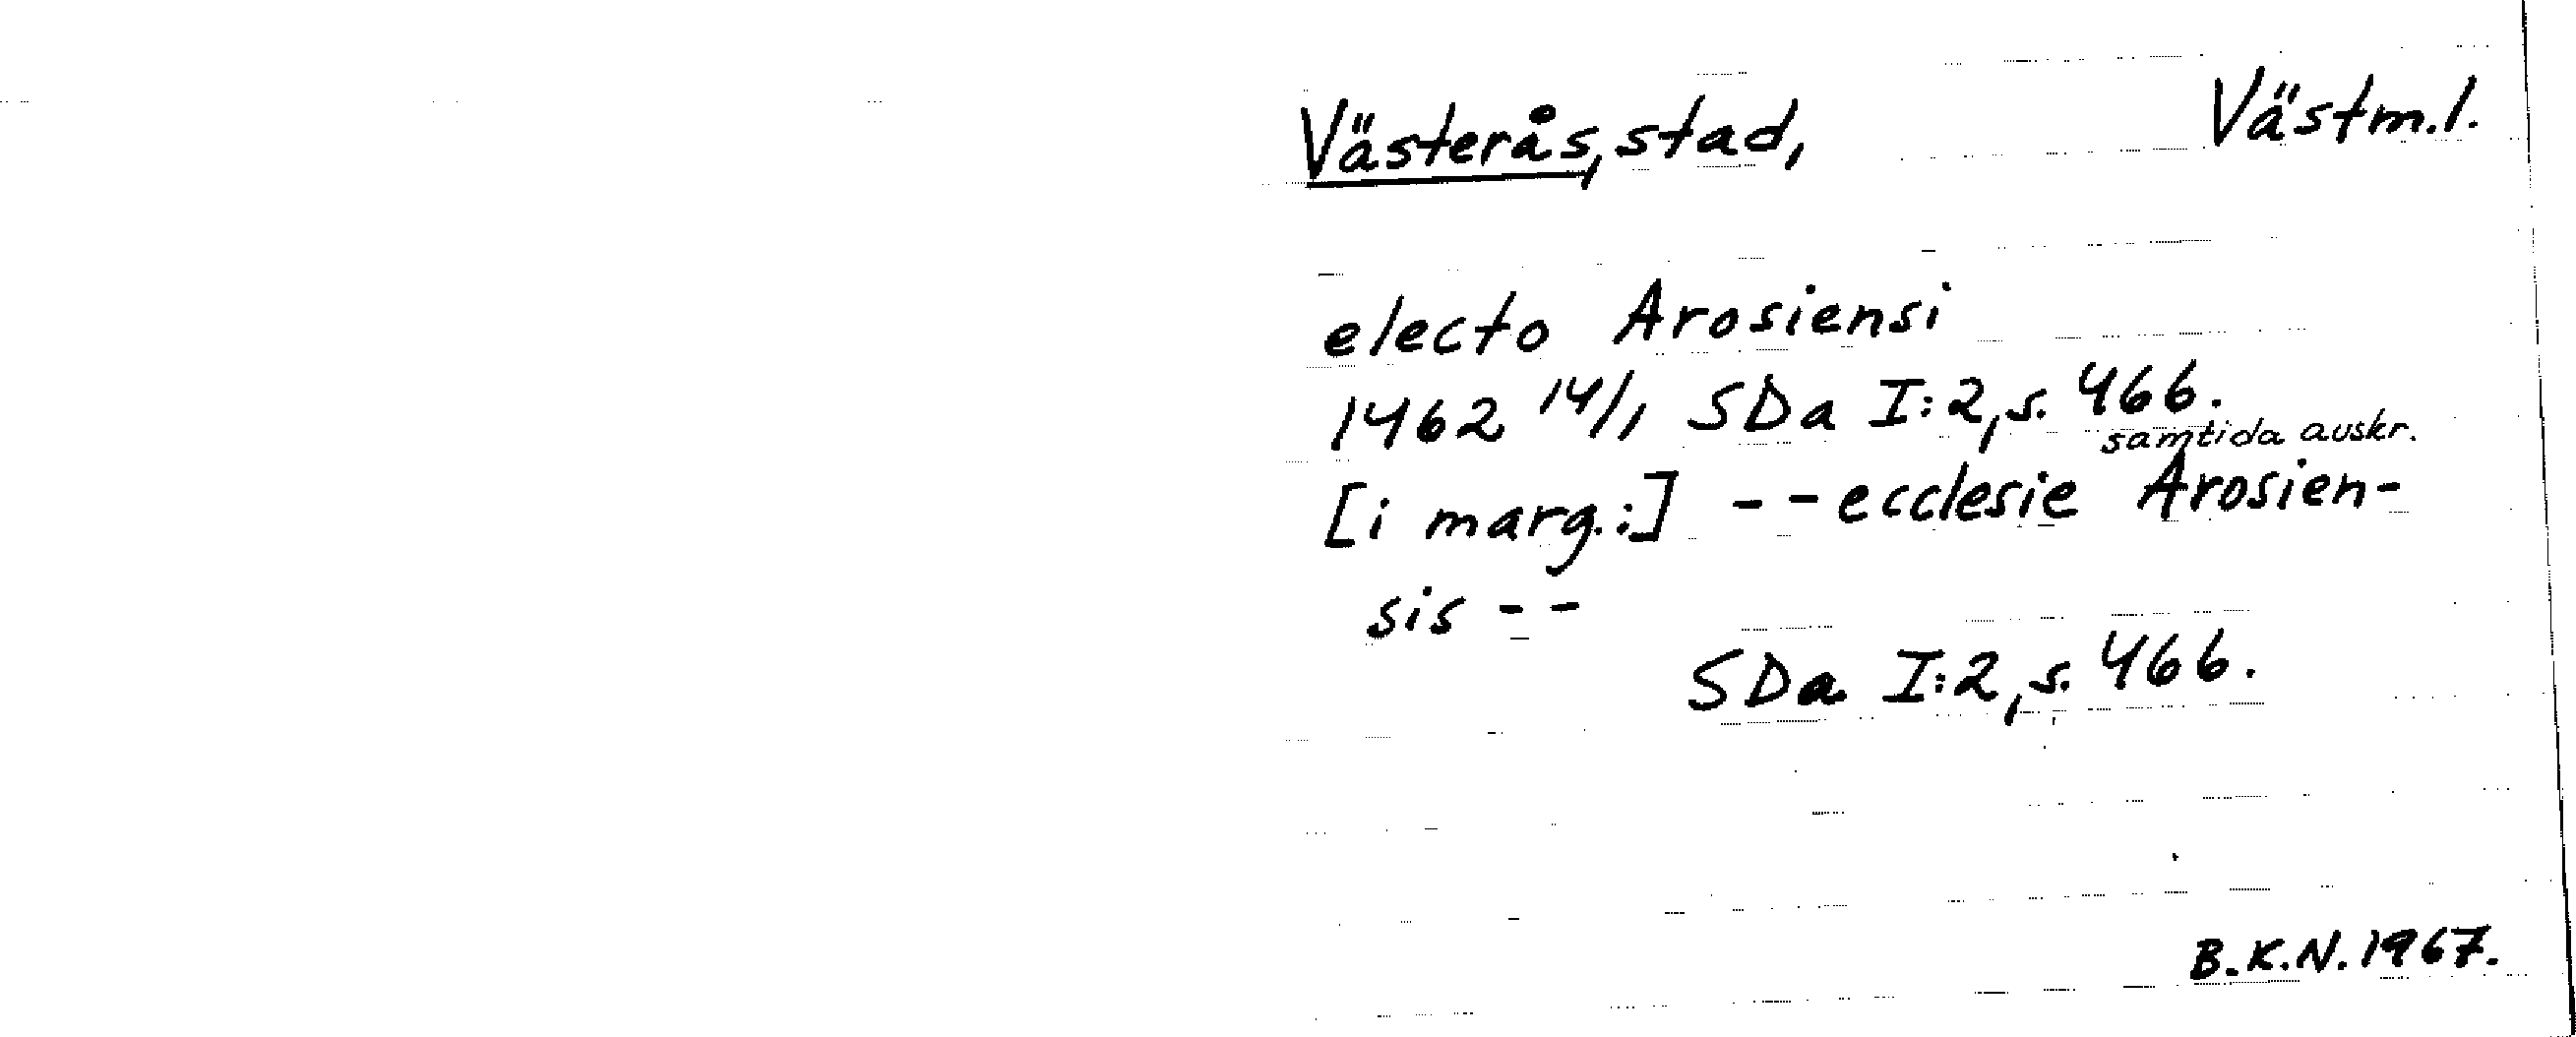 Västerås, stad, Västm.l.
electo Arosiensi
1462 14/1 SDa I:2, s. 466.
samtida avskr.
[i marg.:] - - ecclesie Arosien-
sis - -
SDa I:2, s. 466.
B.K.N. 1967.